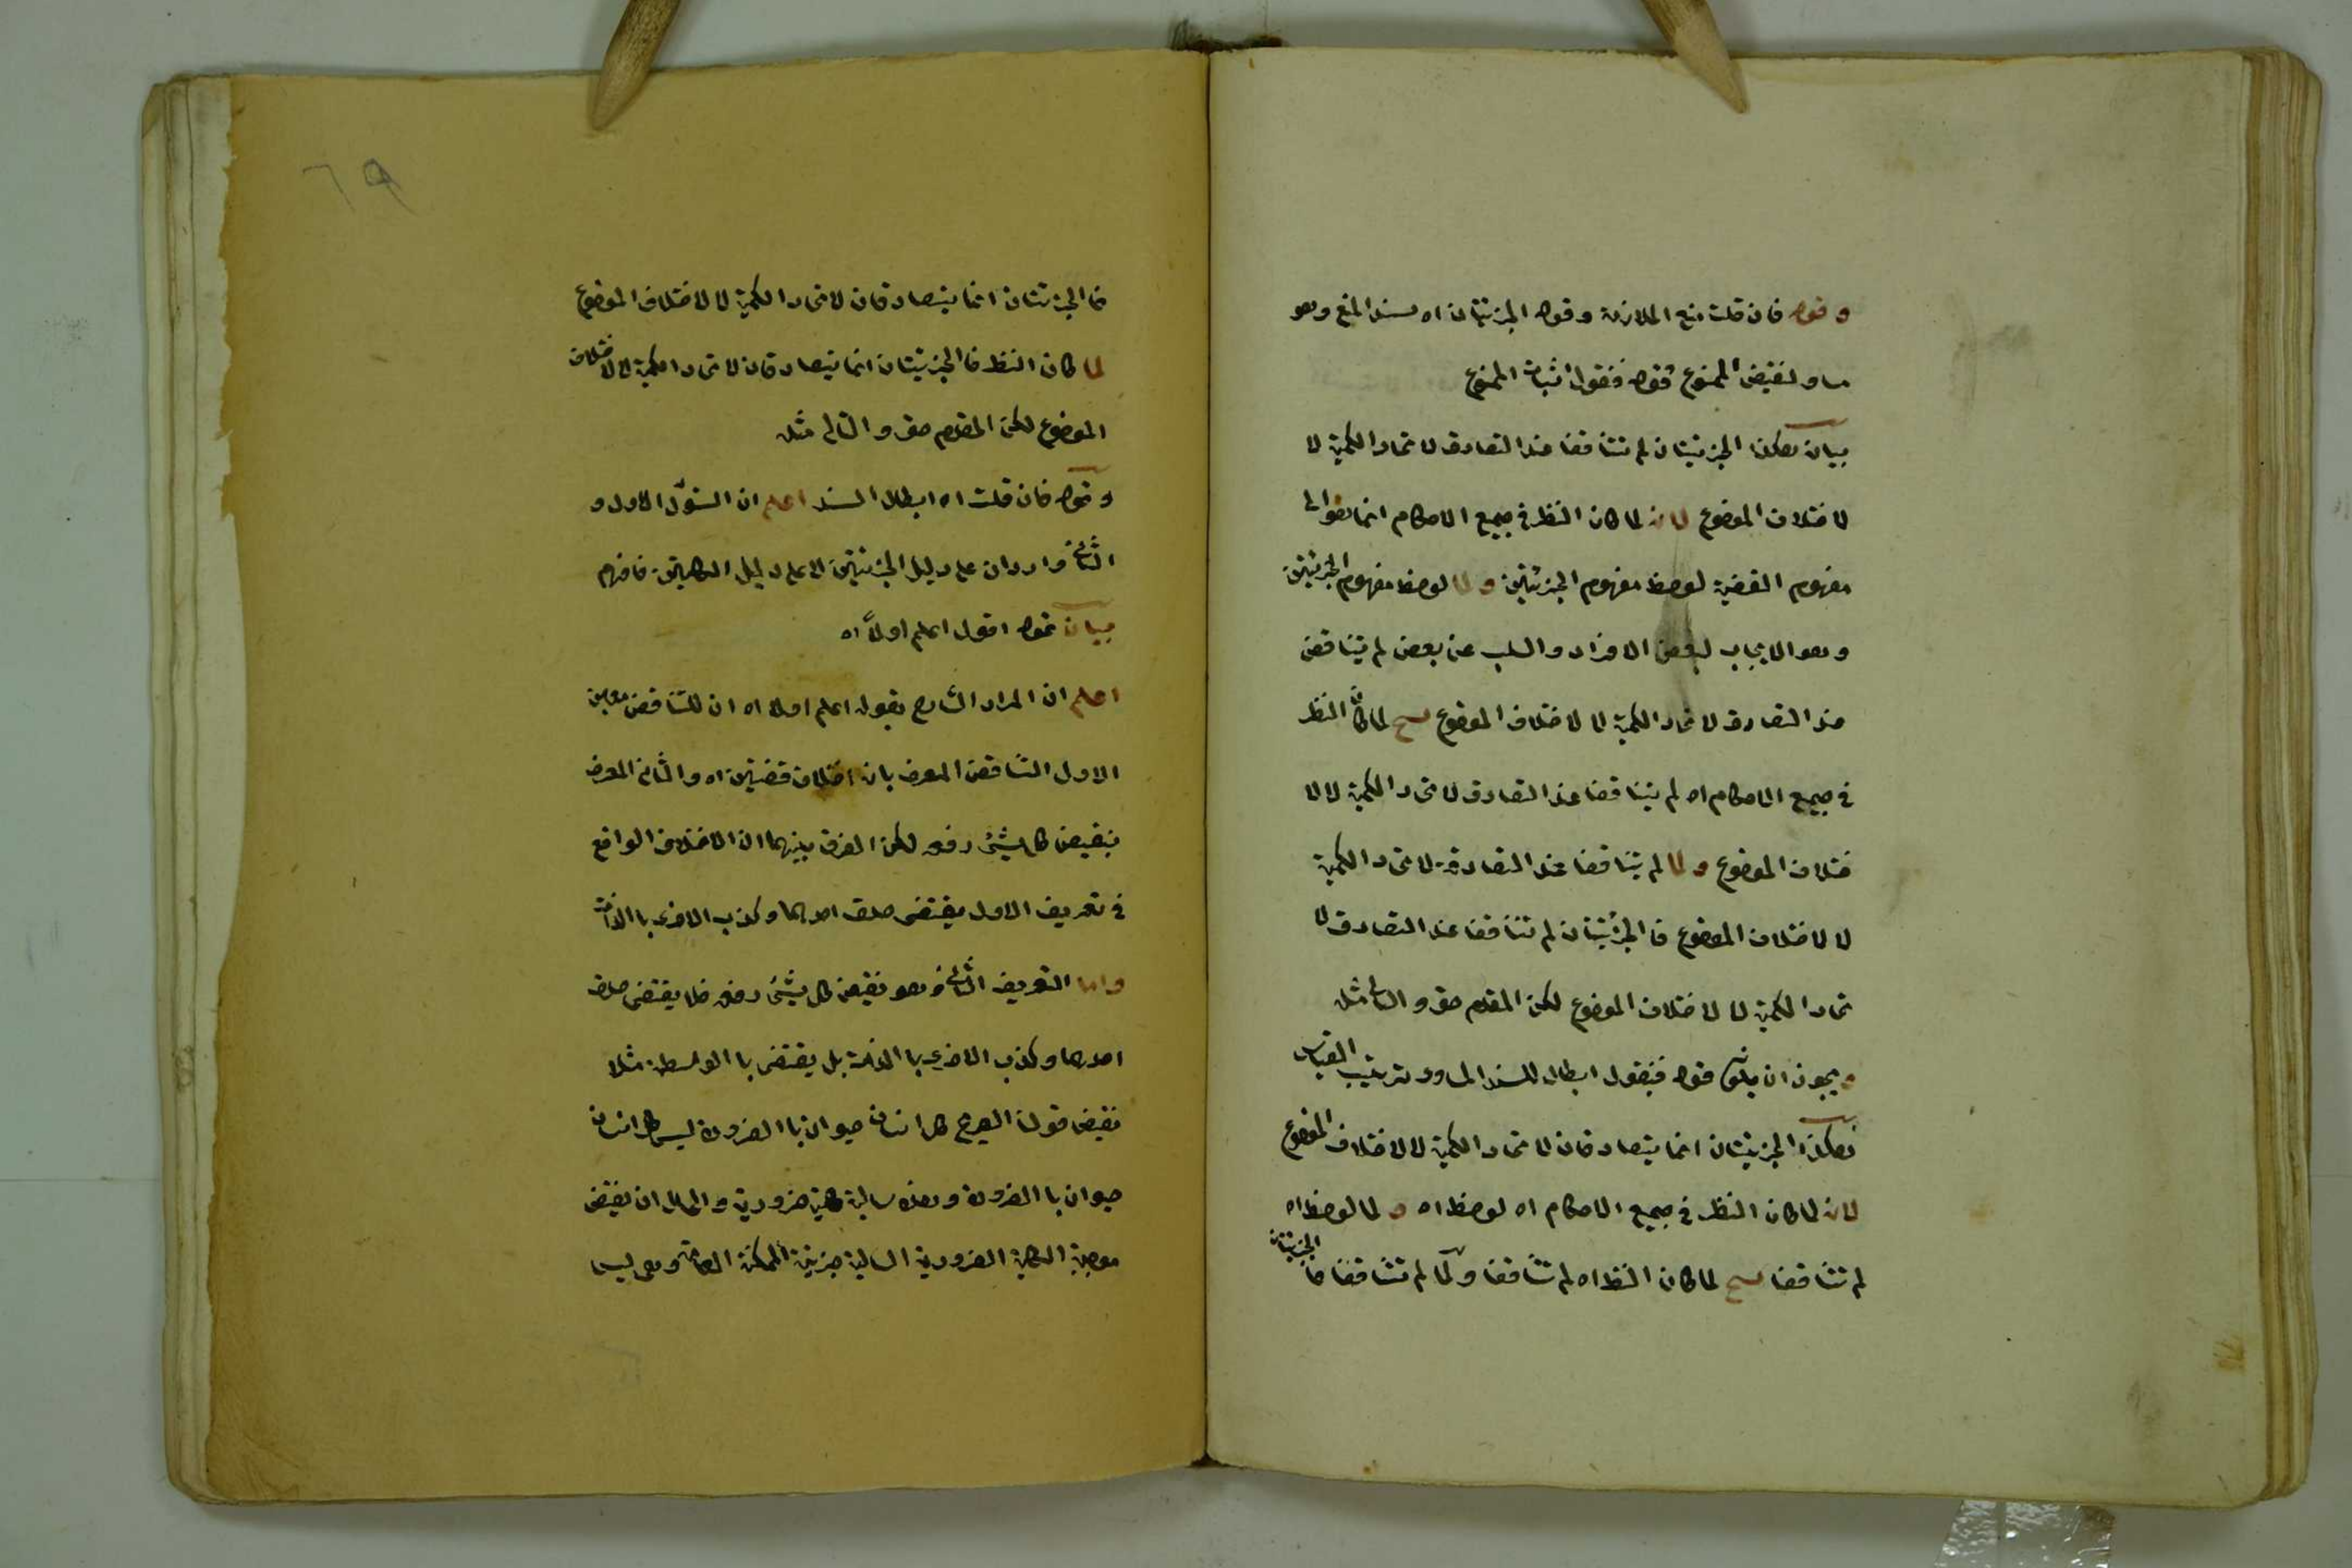 وقوله فان قلت منع الملازمة وقوله الجزئيتان اه سند المنع وهو
مساو لنقيض الممنوع قوله فنقول اثبات الممنوع
بيان هكذا الجزئيتان لم تتناقضا عند التصادق لاتحاد الكمية لا
لاختلاف الموضوع لانه لما كان النظر في جميع الاحكام انما هو الى
مفهوم القضية لوحظ مفهوم الجزئيتين ولما لوحظ مفهوم الجزئيتين
وهو الايجاب لبعض الافراد والسلب عن بعض لم يتناقض
عند التصادق لاتحاد الكمية لا لاختلاف الموضوع لما كان النظر
في جميع الاحكام اه لم يتناقضا عند التصادق لاتحاد الكمية لا لا
ختلاف الموضوع ولما لم يتناقضا عند التصادق لاتحاد الكمية
لا لاختلاف الموضوع فالجزئيتان لم تتناقضا عند التصادق لا
تحاد الكمية لا لاختلاف الموضوع لكن المقدم حق والتالى مثله
ويجوز ان يكون قوله فنقول ابطال للسند المساوى ترتيب القياس
هكذا الجزئيتان انما يتصادقان لاتحاد الكمية لا لاختلاف الموضوع
لانه لما كان النظر في جميع الاحكام اه لوحظ اه ولما لوحظ اه
لم تتناقضا لما كان النظر اه لم تتناقضا ولما لم تتناقضا فا الجزئيتان
٦٩
فا الجزئيتان انما يتصادقان لاتحاد الكمية لا لاختلاف الموضوع
لما كان النظر فا الجزئيتان انما يتصادقان لاتحاد الكمية لا لاختلاف
الموضوع لكن المقدم حق والتالى مثله
وقوله فان قلت اه ابطال السند اعلم ان السؤل الاول و
الثانى واردان على دليل الجزئيتين لا على دليل الكليتين فافهم
بيان قوله اقول اعلم اولاً اه
اعلم ان المراد الشارح بقوله اعلم اولا اه ان للتناقض معنيين
الاول التناقض المعرف بانه اختلاف قضيتين اه والثانى المعرف
بنقيض كل شيئ رفعه لكن الفرق بينهما ان الاختلاف الواقع
في تعريف الاول يقتضى صدق احدهما وكذب الاخرى با الذات
واما التعريف الثانى وهو نقيض كل شيئ رفعه فلا يقتضى صدق
احدهما وكذب الاخرى با الذات بل يقتضى با الواسطة مثلا
نقيض قولنا الصريح كل انسان حيوان با الضرورة ليس كل انسان
حيوان با الضرورة وهذه سالبة كلية ضرورية والحال ان نقيض
موجبة الكلية الضرورية السالبة جزئية الممكنة العامة وهى ليس